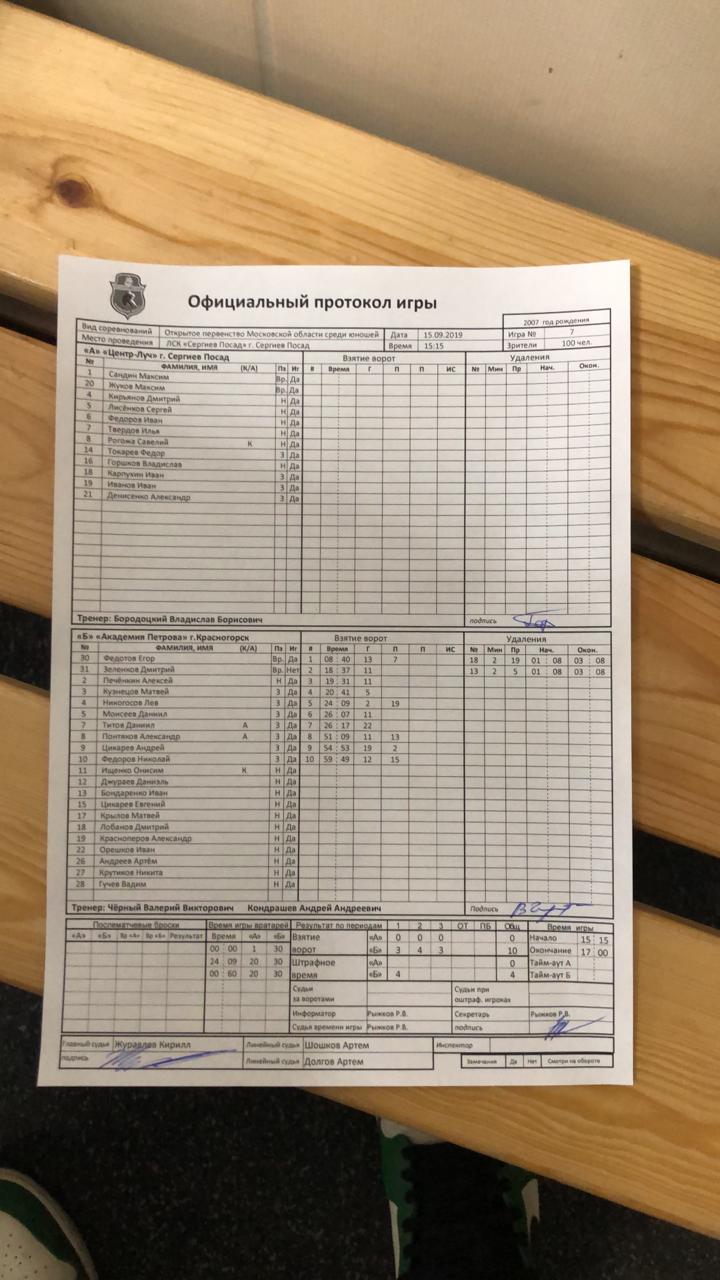 Официальный протокол игры
2007 год рождения
Вид соревнований Открытое первенство Московской области среди юношей Дата 15.09.2019 Игра № 7
Место проведения ЛСК «Сергиев Посад» г. Сергиев Посад Время 15:15 Зрители 100 чел.
«А» «Центр-Луч» г. Сергиев Посад Взятие ворот Удаления
№ ФАМИЛИЯ, ИМЯ (К/А) Пз Иг # Время Г П П ИС № Мин Пр Нач. Окон.
1 Сандин Максим Вр. Да
20 Жуков Максим Вр. Да
4 Кирьянов Дмитрий Н Да
5 Лисёнков Сергей Н Да
6 Федоров Иван Н Да
7 Твердов Илья Н Да
8 Рогожа Савелий К Н Да
14 Токарев Федор З Да
16 Горшков Владислав Н Да
18 Карпухин Иван З Да
19 Иванов Иван З Да
21 Денисенко Александр З Да
Тренер: Бородоцкий Владислав Борисович подпись
«Б» «Академия Петрова» г.Красногорск Взятие ворот Удаления
№ ФАМИЛИЯ, ИМЯ (К/А) Пз Иг # Время Г П П ИС № Мин Пр Нач. Окон.
30 Федотов Егор Вр. Да 1 08 40 13 7 18 2 19 01 08 03 08
31 Зеленков Дмитрий Вр. Нет 2 18 37 11 13 2 5 01 08 03 08
2 Печёнкин Алексей Н Да 3 19 31 11
3 Кузнецов Матвей З Да 4 20 41 5
4 Никогосов Лев З Да 5 24 09 2 19
5 Моисеев Даниил З Да 6 26 07 11
7 Титов Даниил А З Да 7 26 17 22
8 Понтяков Александр А З Да 8 51 09 11 13
9 Цикарев Андрей З Да 9 54 53 19 2
10 Федоров Николай З Да 10 59 49 12 15
11 Ищенко Онисим К Н Да
12 Джураев Даниэль Н Да
13 Бондаренко Иван Н Да
15 Цикарев Евгений Н Да
17 Крылов Матвей Н Да
18 Лобанов Дмитрий Н Да
19 Красноперов Александр Н Да
22 Орешков Иван Н Да
26 Андреев Артём Н Да
27 Крутиков Никита Н Да
28 Гучев Вадим Н Да
Тренер: Чёрный Валерий Викторович Кондрашев Андрей Андреевич Подпись
Послематчевые броски Время игры вратарей Результат по периодам 1 2 3 ОТ ПБ Общ Время игры
«А» «Б» Вр «А» Вр «Б» Результат Время «А» «Б» Взятие «А» 0 0 0 0 Начало 15 15
00 00 1 30 ворот «Б» 3 4 3 10 Окончание 17 00
24 09 20 30 Штрафное «А» 0 Тайм-аут А
00 60 20 30 время «Б» 4 4 Тайм-аут Б
Судьи за воротами Судьи при оштраф. игроках
Информатор Рыжков Р.В. Секретарь Рыжков Р.В.
Судья времени игры Рыжков Р.В. подпись
Главный судья Журавлев Кирилл Линейный судья Шошков Артем Инспектор
подпись Линейный судья Долгов Артем Замечания Да Нет Смотри на обороте